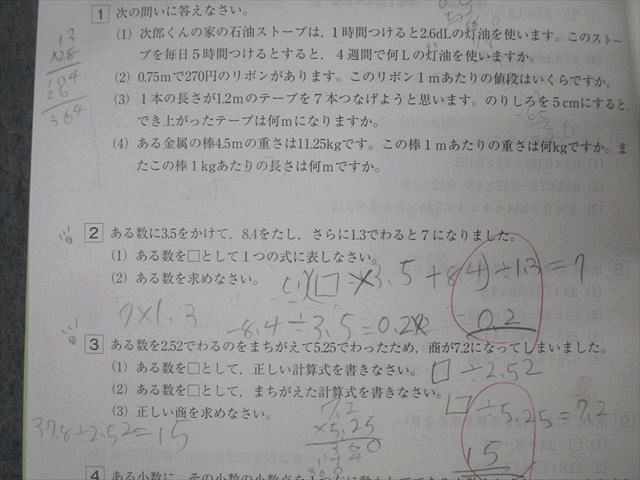 1 次の問いに答えなさい。
(1) 次郎くんの家の石油ストーブは，1時間つけると2.6dLの灯油を使います。このストー
ブを毎日5時間つけるとすると，4週間で何Lの灯油を使いますか。
(2) 0.75mで270円のリボンがあります。このリボン1mあたりの値段はいくらですか。
(3) 1本の長さが1.2mのテープを7本つなげようと思います。のりしろを5cmにすると，
でき上がったテープは何mになりますか。
(4) ある金属の棒4.5mの重さは11.25kgです。この棒1mあたりの重さは何kgですか。ま
たこの棒1kgあたりの長さは何mですか。
13
364
2 ある数に3.5をかけて，8.4をたし，さらに1.3でわると7になりました。
(1) ある数を□として1つの式に表しなさい。
(2) ある数を求めなさい。
(1)(□×3.5+8.4)÷1.3=7
7×1.3
-8.4÷3.5=0.2
0.2
3 ある数を2.52でわるのをまちがえて5.25でわったため，商が7.2になってしまいました。
(1) ある数を□として，正しい計算式を書きなさい。
□÷2.52
(2) ある数を□として，まちがえた計算式を書きなさい。
□÷5.25=7.2
(3) 正しい商を求めなさい。
7.2
×5.25
37.8÷2.52=15
15
4 ある小数に，その小数の小数点を1つ